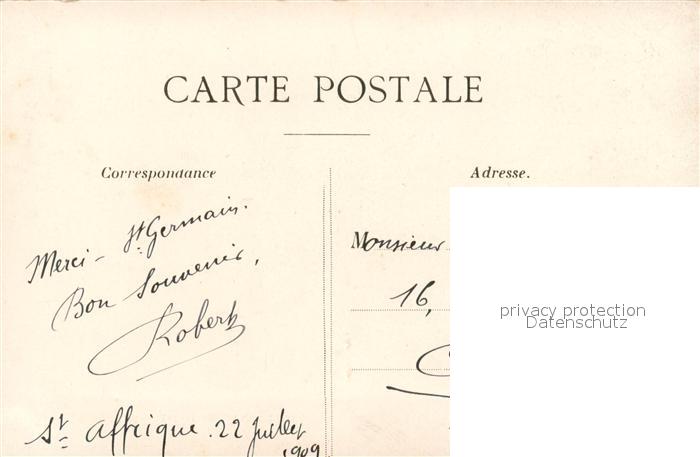 CARTE POSTALE
Correspondance
Merci - St Germain.
Bon Souvenir,
Robert
St Affrique. 22 Juillet
1909
Adresse.
Monsieur
16,
privacy protection
Datenschutz